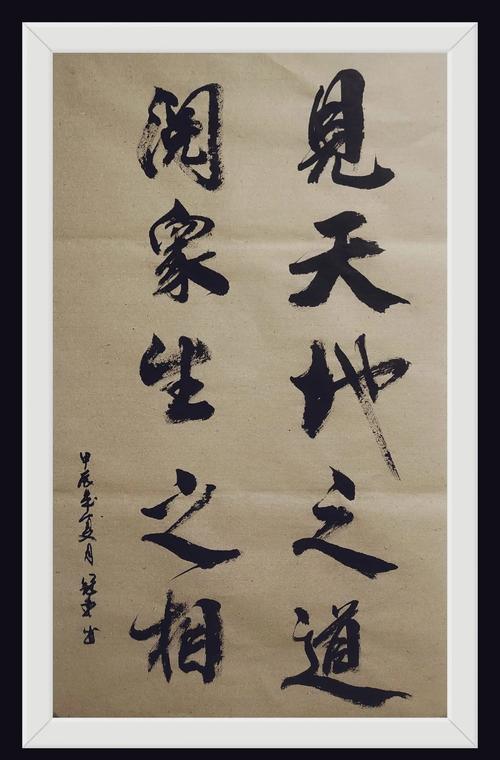 見天地之道
閱眾生之相
甲辰年夏月